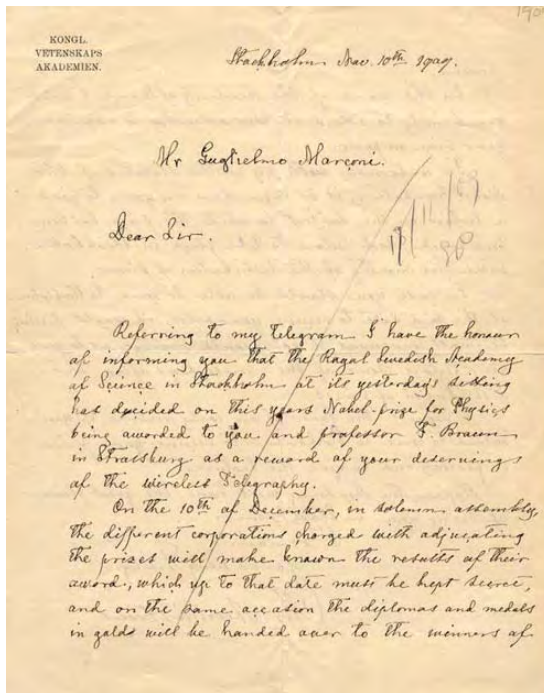 1909
KONGL.
VETENSKAPS
AKADEMIEN.
Stockholm Nov. 10th 1909.
Mr Guglielmo Marconi.
Dear Sir.
Referring to my telegram I have the honour
of informing you that the Royal Swedish Academy
of Science in Stockholm at its yesterday's sitting
has decided on this years Nobel-prize for Physics
being awarded to you and professor F. Braun
in Strassburg as a reward of your deservings
of the wireless Telegraphy.
On the 10th of December, in solemn assembly,
the different corporations charged with adjugating
the prizes will make known the results of their
award, which up to that date must be kept secret,
and on the same occasion the diplomas and medals
in gold will be handed over to the winners of